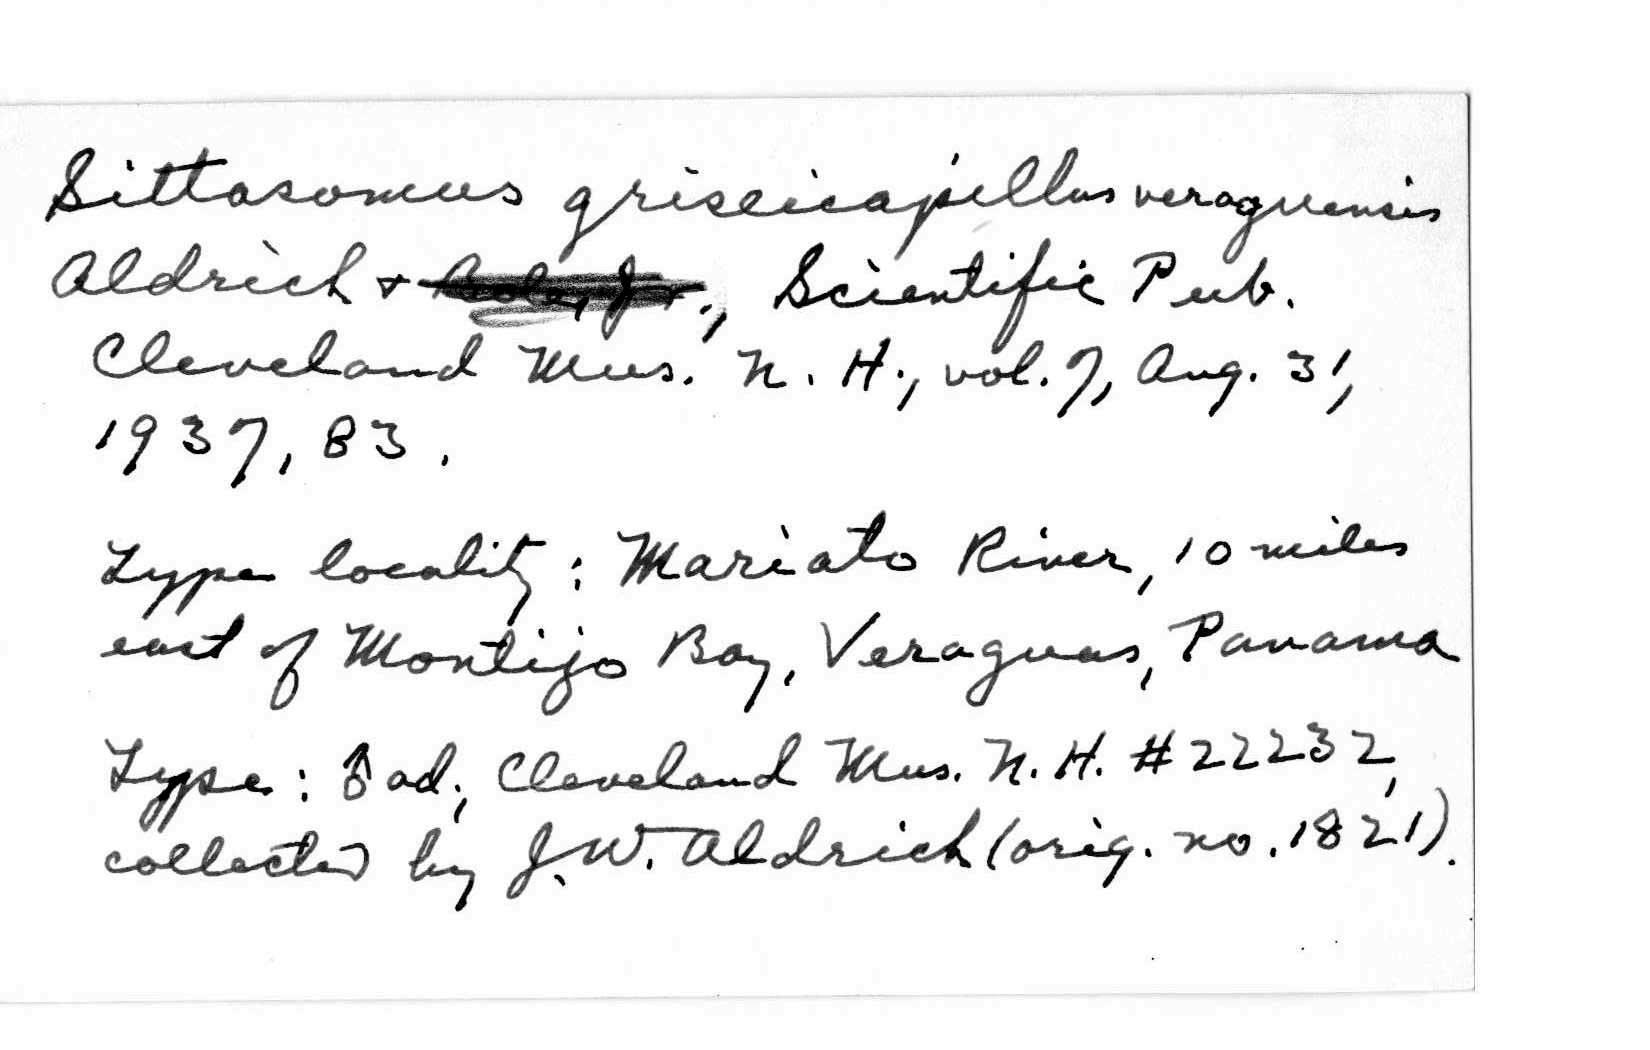 Sittasomus griseicapillus veraguensis
Aldrich + Bole, Jr., Scientific Pub.
Cleveland Mus. N. H., vol. 7, Aug. 31,
1937, 83.
Type locality: Mariato River, 10 miles
east of Montijo Bay, Veraguas, Panama
Type: ♂ ad., Cleveland Mus. N. H. #22232,
collected by J. W. Aldrich (orig. no. 1821).